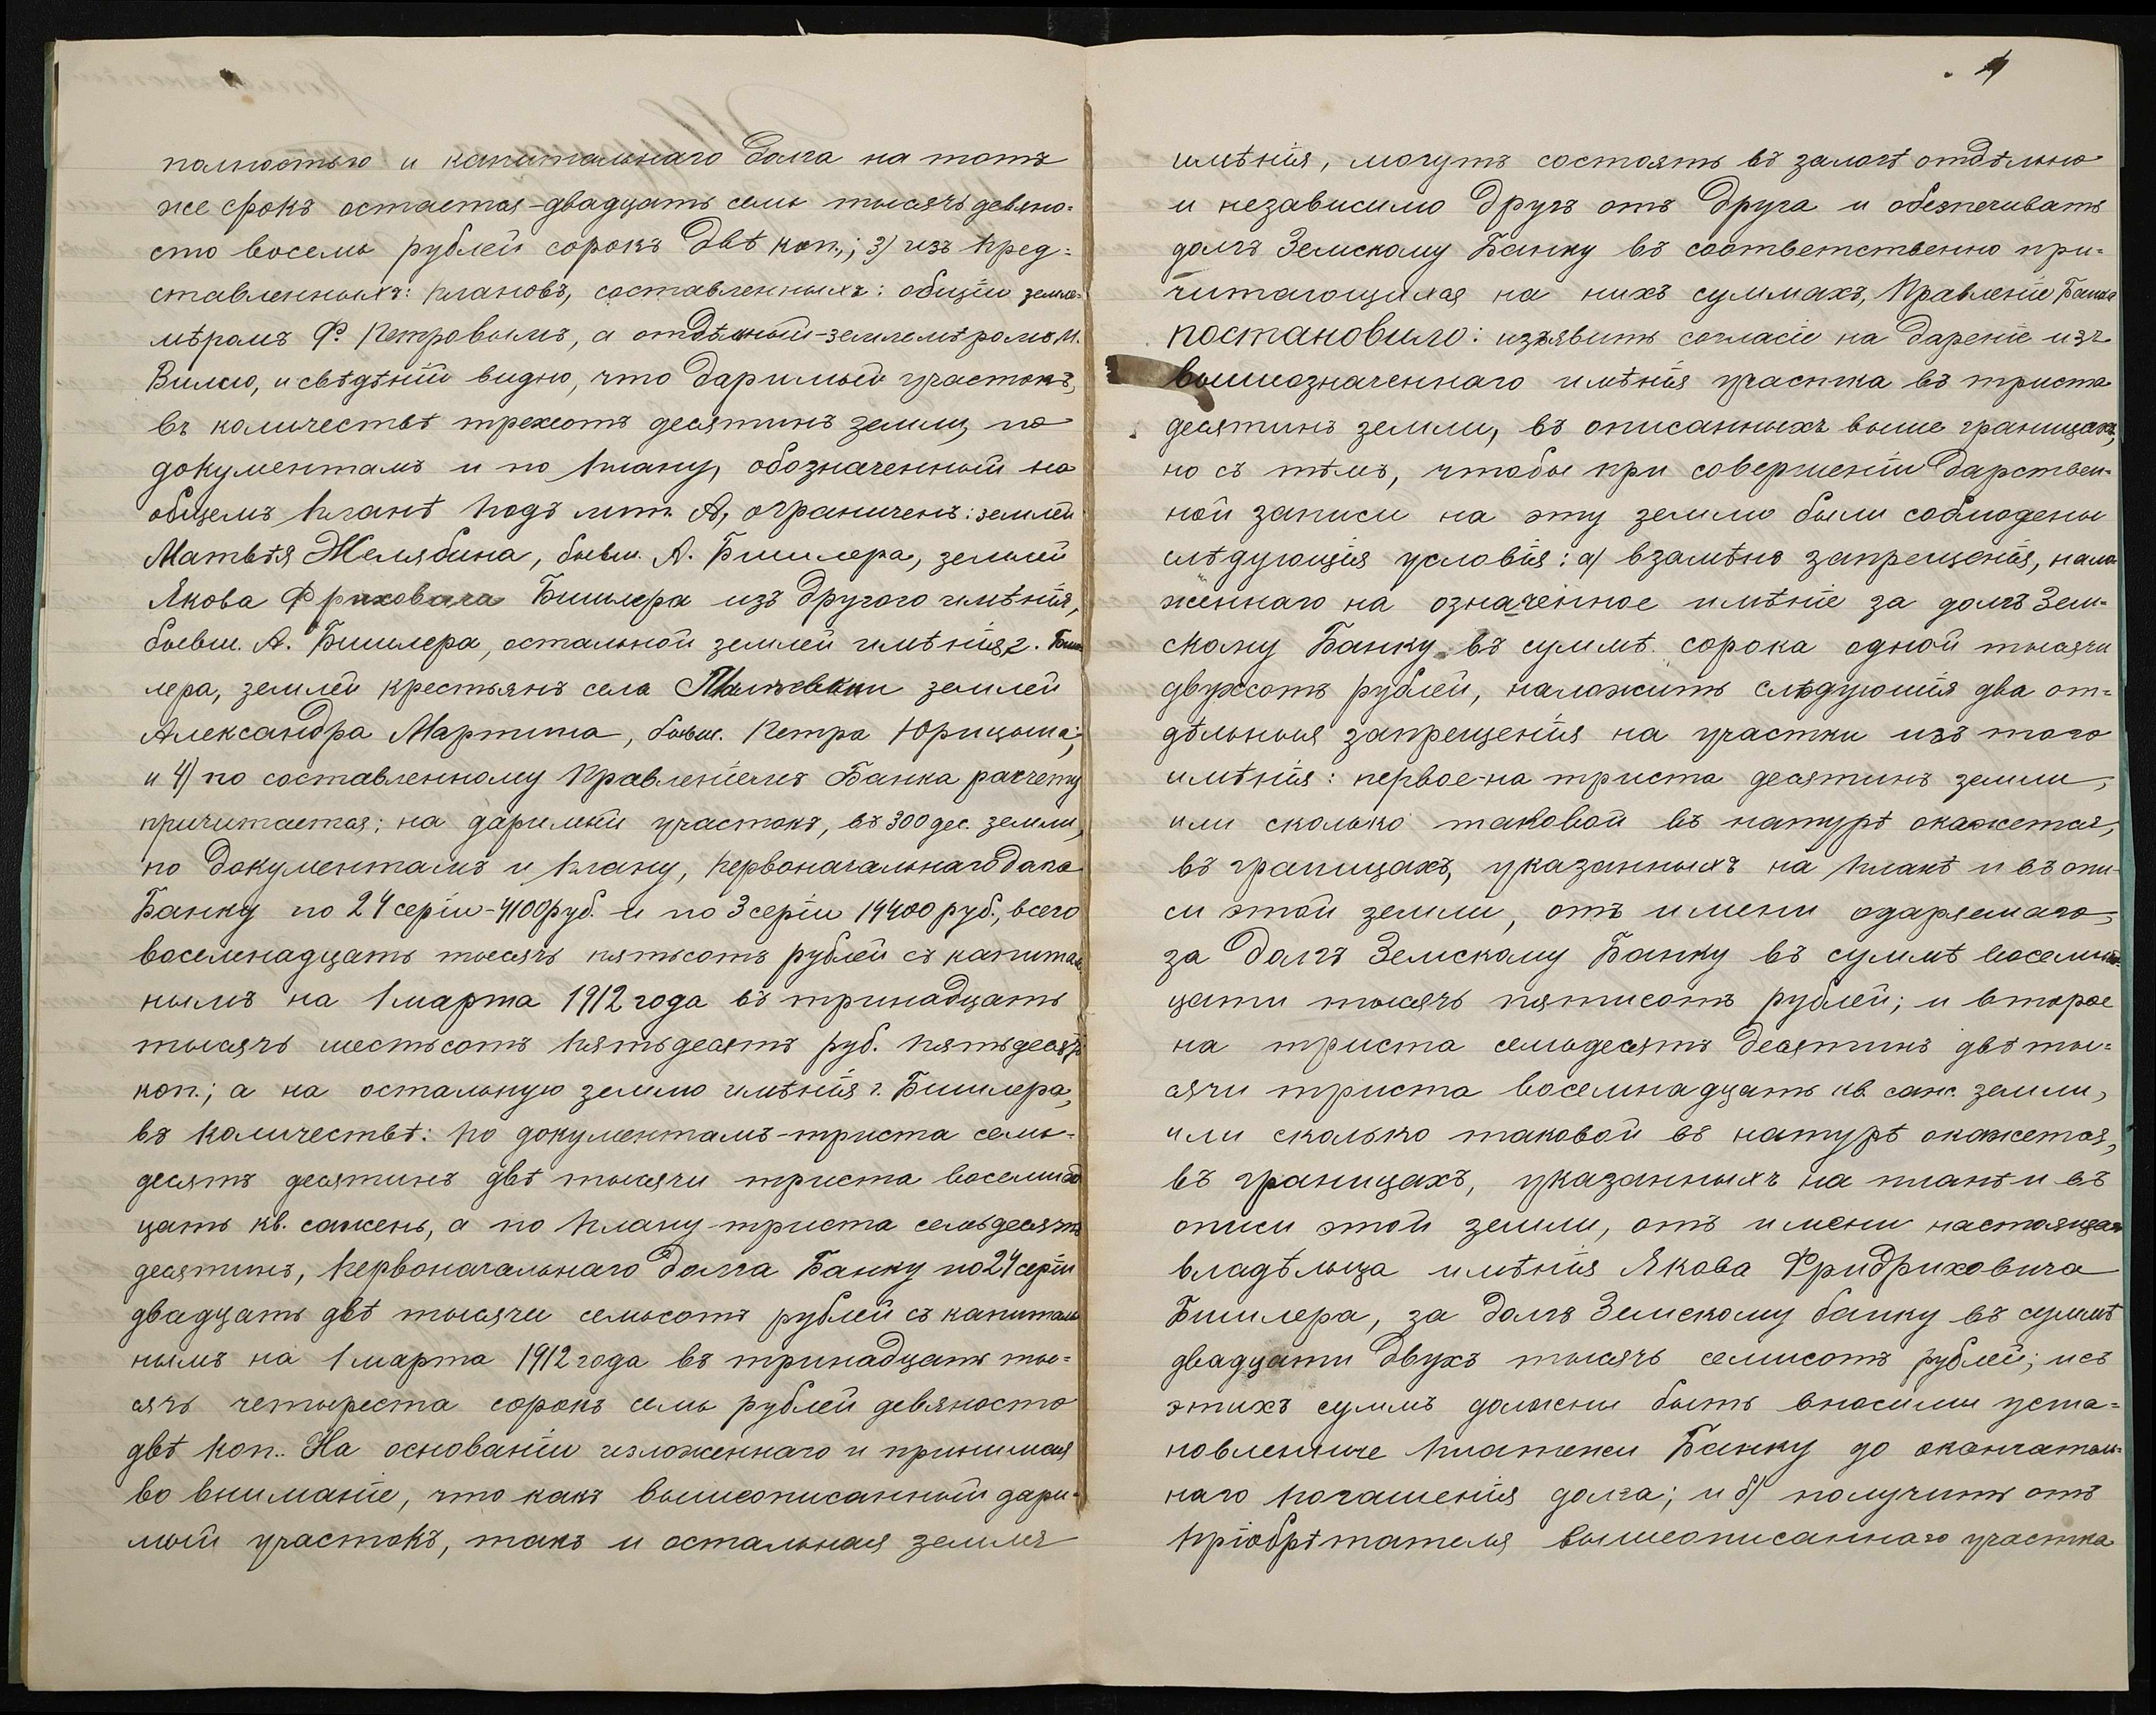 полностью и капитальнаго долга на тотъ
же срокъ остается-двадцать семь тысячъ девяно-
сто восемь рублей сорокъ двѣ коп.; 3) изъ пред-
ставленныхъ: плановъ, составленныхъ: общій земле-
мѣромъ Ф. Петровымъ, а отдѣльный-землемѣромъ И.
и свѣдѣній видно, что даримый участокъ,
въ количествѣ трехсотъ десятинъ земли, по
документамъ и по плану, обозначенный на
общемъ планѣ подъ лит. А, ограниченъ: землей
Матвѣя Желябина, бывш. А. Бишлера, землей
Якова Фриховича Бишлера изъ другого имѣнія,
бывш. А. Бишлера, остальной землей имѣнія г. Биш-
лера, землей крестьянъ села землей
Александра Мартина, бывш. Петра Юрицына;
и 4) по составленному Правленіемъ Банка расчету
причитается: на даримый участокъ, въ 300 дес. земли,
по документамъ и плану, первоначальнаго долга
Банку по 24 серіи-4100 руб. и по 3 серіи 14400 руб., всего
восемнадцать тысячъ пятьсотъ рублей съ капиталь
нымъ на 1 марта 1912 года въ тринадцать
тысячъ шестьсотъ пятьдесятъ руб. пятьдесятъ
коп.; а на остальную землю имѣнія г. Бишлера,
въ количествѣ: по документамъ-триста семь-
десятъ десятинъ двѣ тысячи триста восемнад
цать кв. сажень, а по плану-триста семьдесятъ
десятинъ, первоначальнаго долга Банку по 24 серіи
двадцать двѣ тысячи семьсотъ рублей съ капиталь
нымъ на 1 марта 1912 года въ тринадцать ты-
сячъ четыреста сорокъ семь рублей девяносто
двѣ коп.. На основаніи изложеннаго и принимая
во вниманіе, что какъ вышеописанный дари-
мый участокъ, такъ и остальная земля
4
имѣнія, могутъ состоять въ залогѣ отдѣльно
и независимо другъ отъ друга и обезпечивать
долгъ Земскому Банку въ соответственно при-
читающихся на нихъ суммахъ, Правленіе Банка
постановило: изъявить согласіе на дареніе изъ
вышеозначеннаго имѣнія участка въ триста
десятинъ земли, въ описанныхъ выше границахъ,
но съ тѣмъ, чтобы при совершеніи дарствен-
ной записи на эту землю были соблюдены
слѣдующія условія: а) взамѣнъ запрещенія, нало
женнаго на означенное имѣніе за долгъ Зем-
скому Банку въ суммѣ сорока одной тысячи
двухсотъ рублей, наложить слѣдующія два от-
дѣльныя запрещенія на участки изъ того
имѣнія: первое-на триста десятинъ земли,
или сколько таковой въ натурѣ окажется,
въ границахъ, указанныхъ на планѣ и въ опи-
си этой земли, отъ имени одаряемаго,
за долгъ Земскому Банку въ суммѣ восемнад-
цати тысячъ пятисотъ рублей; и второе
на триста семьдесятъ десятинъ двѣ ты-
сячи триста восемнадцать кв. саж. земли,
или сколько таковой въ натурѣ окажется,
въ границахъ, указанныхъ на планѣ и въ
описи этой земли, отъ имени настоящаго
владѣльца имѣнія Якова Фридриховича
Бишлера, за долгъ Земскому банку въ суммѣ
двадцати двухъ тысячъ семисотъ рублей; и съ
этихъ суммъ должны быть вносимы уста-
новленные платежи Банку до окончатель-
наго погашенія долга; и б) получить отъ
пріобрѣтателя вышеописаннаго участка